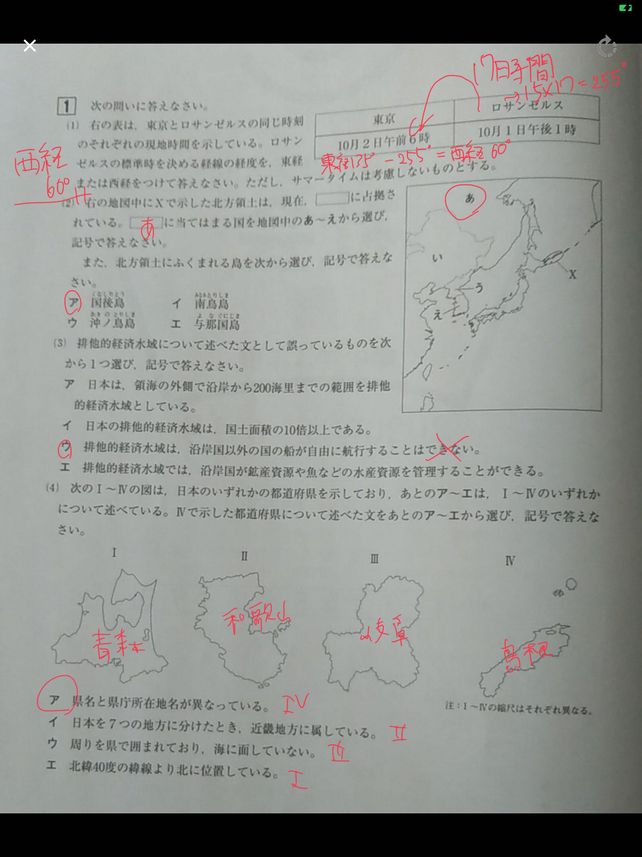 17時間
→15×17=255°
1 次の問いに答えなさい。
(1) 右の表は，東京とロサンゼルスの同じ時刻
のそれぞれの現地時間を示している。ロサン
ゼルスの標準時を決める経線の経度を，東経
または西経をつけて答えなさい。ただし，サマータイムは考慮しないものとする。
東京 ロサンゼルス
10月2日午前6時 10月1日午後1時
東経135°－255°＝西経60°
西経
60°
(2) 右の地図中にXで示した北方領土は，現在，に占拠さ
れている。あに当てはまる国を地図中のあ～えから選び，
記号で答えなさい。
また，北方領土にふくまれる島を次から選び，記号で答えな
さい。
くなしりとう みなみとりしま
ア 国後島 イ 南鳥島
おきのとりしま よなぐにじま
ウ 沖ノ鳥島 エ 与那国島
あ
い
う
え
X
(3) 排他的経済水域について述べた文として誤っているものを次
から1つ選び，記号で答えなさい。
ア 日本は，領海の外側で沿岸から200海里までの範囲を排他
的経済水域としている。
イ 日本の排他的経済水域は，国土面積の10倍以上である。
ウ 排他的経済水域は，沿岸国以外の国の船が自由に航行することはできない。
エ 排他的経済水域では，沿岸国が鉱産資源や魚などの水産資源を管理することができる。
(4) 次のⅠ～Ⅳの図は，日本のいずれかの都道府県を示しており，あとのア～エは，Ⅰ～Ⅳのいずれか
について述べている。Ⅳで示した都道府県について述べた文をあとのア～エから選び，記号で答えな
さい。
Ⅰ Ⅱ Ⅲ Ⅳ
青森 和歌山 岐阜 島根
ア 県名と県庁所在地名が異なっている。 Ⅳ
注：Ⅰ～Ⅳの縮尺はそれぞれ異なる。
イ 日本を7つの地方に分けたとき，近畿地方に属している。 Ⅱ
ウ 周りを県で囲まれており，海に面していない。 Ⅲ
エ 北緯40度の緯線より北に位置している。 Ⅰ